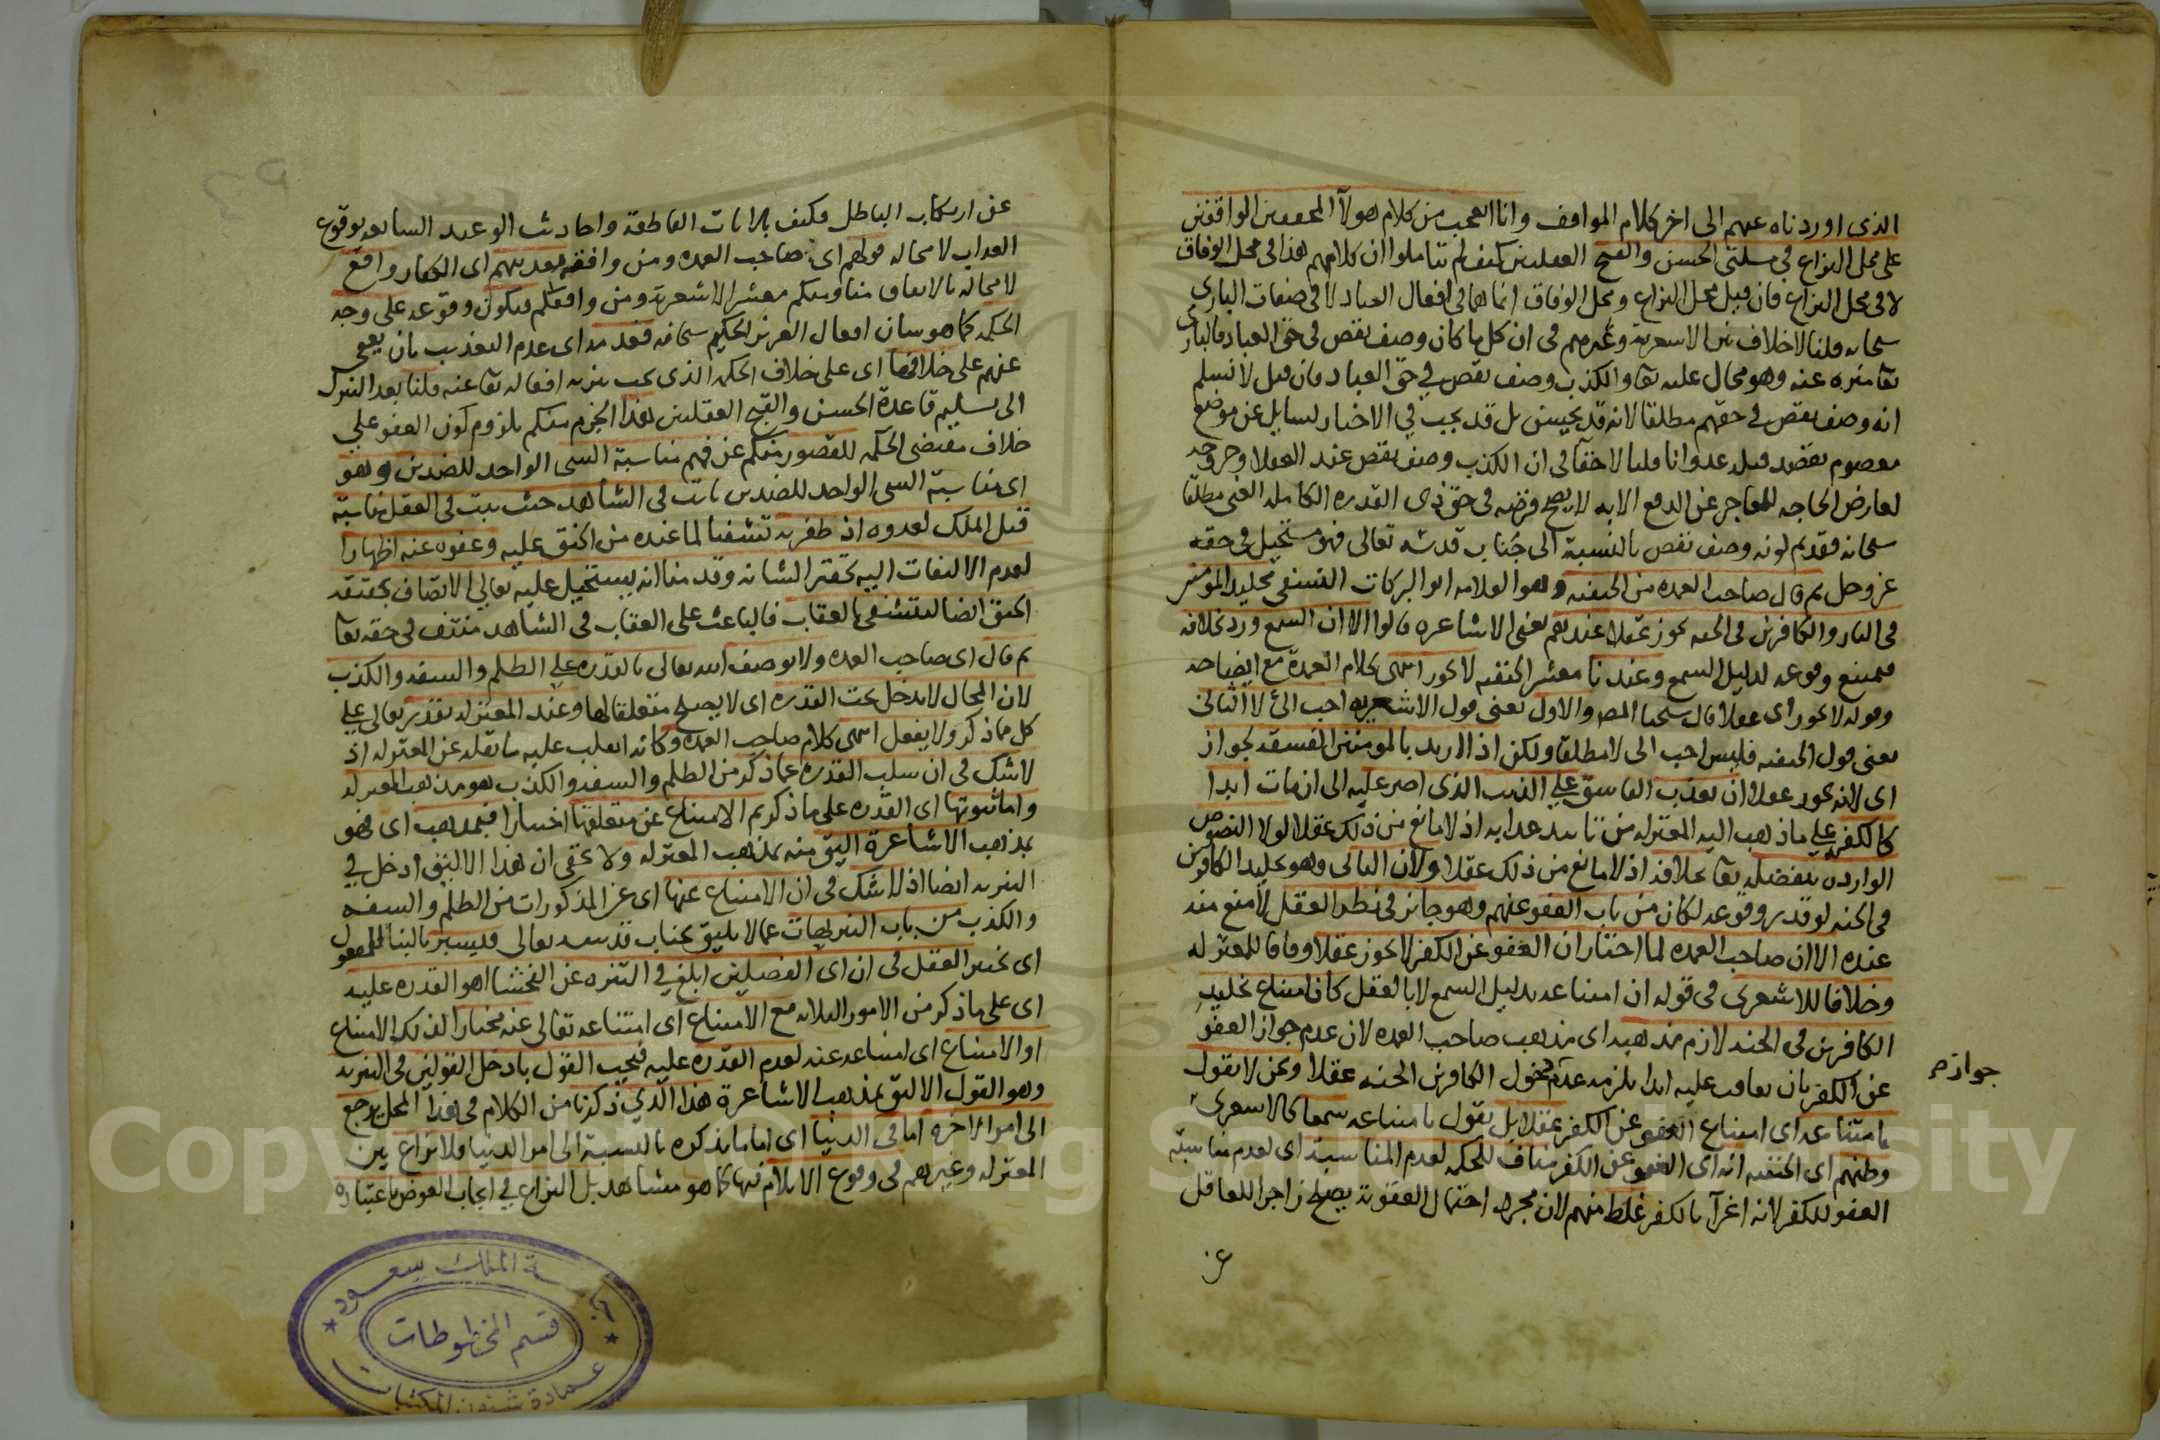 الذى اوردناه عنهم الى اخر كلام المواقف وانا اتعجب من كلام هولآ المحققين الواقفين
على محل النزاع فى مسئلتى الحسن والقبح العقليين كيف لم يتاملوا ان كلامهم هذا فى محل الوفاق
لا فى محل النزاع فان قيل محل النزاع ومحل الوفاق انما هما فى افعال العباد لا فى صفات البارى
سبحانه قلنا لا خلاف بين الاشعرية وغيرهم فى ان كل ما كان وصف نقص فى حق العباد فالبارى
تعا منزه عنه وهو محال عليه تعا والكذب وصف نقص فى حق العباد فان قيل لا نسلم
انه وصف نقص فى حقهم مطلقا لانه قد يحسن بل قد يجب فى الاخبار لسايل عن موضع
معصوم يقصد قتله عدوانا قلنا لا خفآ فى ان الكذب وصف نقص عند العقلا وخروجه
لعارض الحاجه للعاجز عن الدفع الا به لا يصح فرضه فى حق ذى القدره الكامله الغنى مطلقا
سبحانه فقد تم كونه وصف نقص بالنسبة الى جناب قدسه تعالى فهو مستحيل فى حقه
عز وجل ثم قال صاحب العمده من الحنفيه وهو العلامه ابو البركات النسفى تخليد المومنين
فى النار والكافرين فى الجنه يجوز عقلا عندهم يعنى الاشاعره قالوا الا ان السمع ورد بخلافه
فيمتنع وقوعه لدليل السمع وعندنا معشر الحنفيه لا يجوز انتهى كلام العمدة مع ايضاحه
وقوله لا يجوز اى عقلا قال شيخنا المص والاول يعنى قول الاشعريه احب الى لا الثانى
يعنى قول الحنفيه فليس احب الى لا مطلقا ولكن اذا اريد بالمومنين الفسقه لجواز
اى لانه يجوز عقلا ان يعذب الفاسق على الذنب الذى اصر عليه الى ان مات ابدا
كالكفر على ما ذهب اليه المعتزله من تابيد عذابه اذ لا مانع من ذلك عقلا لولا النصوص
الوارده بتفضله تعا بخلافه اذ لا مانع من ذلك عقلا ولان الثانى وهو تخليد الكافرين
فى الجنه لو قدر وقوعه لكان من باب العفو عنهم وهو جائز فى نظر العقل لا منع منه
عنده الا ان صاحب العمده لما اختار ان العفو عن الكفر لا يجوز عقلا وفاقا للمعتزله
وخلافا للاشعرى فى قوله ان امتناعه بدليل السمع لا بالعقل كان امتناع تخليد
الكافرين فى الجنه لازم مذهبه اى مذهب صاحب العمده لان عدم جواز العفو
عن الكفر بان يعاقب عليه ابدا يلزمه عدم دخول الكافرين الجنه عقلا ونحن لا نقول
جوازه
بامتناعه اى امتناع العفو عن الكفر عقلا بل نقول بامتناعه سمعا كالاشعرى
وظنهم اى الحنفيه انه اى العفو عن الكفر مناف للحكمه لعدم المناسبة اى لعدم مناسبته
العفو للكفر لانه اغرآ بالكفر غلط منهم لان مجرد احتمال العقوبة يصلح زاجرا للعاقل
عن
عن ارتكاب الباطل فكيف بالايات القاطعه واحاديث الوعيد السابعه بوقوع
العذاب لا محاله قولهم اى صاحب العمده ومن وافقه تعذيبهم اى الكفار واقع
لا محاله بالاتفاق منا ومنكم معشر الاشعرية ومن وافقكم فيكون وقوعه على وجه
الحكمه كما هو شان افعال العزيز الحكيم سبحانه فعدمه اى عدم التعذيب بان يعفى
عنهم على خلافها اى على خلاف الحكمه الذى يجب تنزيه افعاله تعا عنه قلنا بعد التنزل
الى تسليم قاعدة الحسن والقبح العقليين هذا الجزم منكم بلزوم كون العفو على
خلاف مقتضى الحكمه للقصور منكم عن فهم مناسبة الشى الواحد للضدين وهو
اى مناسبة الشى الواحد للضدين ثابت فى الشاهد حيث يثبت فى العقل مناسبة
قتل الملك لعدوه اذ ظفر به تشفيا لما عنده من الحنق عليه وعفوه عنه اظهارا
لعدم الالتفات اليه تحقيرا لشانه وقد منا انه يستحيل عليه تعالى الاتصاف بحقيقة
الحنق ايضا ليتشفى بالعقاب فالباعث على العقاب فى الشاهد منتف فى حقه تعا
ثم قال اى صاحب العمده ولا يوصف الله تعالى بالقدره على الظلم والسفه والكذب
لان المحال لا يدخل تحت القدره اى لا يصلح متعلقا لها وعند المعتزله يقدر تعالى على
كل ما ذكر ولا يفعل انتهى كلام صاحب العمده وكانه انقلب عليه ما نقله عن المعتزله اذ
لا شك فى ان سلب القدره عما ذكر من الظلم والسفه والكذب هو مذهب المعتزله
واما ثبوتها اى القدره على ما ذكر ثم الامتناع عن متعلقها اختيارا فبمذهب اى فهو
بمذهب الاشاعرة اليق منه بمذهب المعتزله ولا يخفى ان هذا الاليق ادخل فى
التنزيه ايضا اذ لا شك فى ان الامتناع عنها اى عن المذكورات من الظلم والسفه
والكذب من باب التنزيهات عما لا يليق بجناب قدسه تعالى فليسبر بالبنا للمفعول
اى يختبر العقل فى ان اى الفصلين ابلغ فى التنزه عن الفحشا اهو القدره عليه
اى على ما ذكر من الامور الثلاثه مع الامتناع اى امتناعه تعالى عنه مختارا لذلك الامتناع
او الامتناع اى امتناعه عنه لعدم القدره عليه فيجب القول بادخل القولين فى التنزيه
وهو القول الاليق بمذهب الاشاعرة هذا الذى ذكرنا من الكلام فى هذا المحل يرجع
الى امور الآخره اما فى الدنيا اى اما ما نذكره بالنسبة الى امر الدنيا فلا نزاع بين
المعتزله وغيرهم فى وقوع الايلام فيها كما هو مشاهد بل النزاع فى ايجاب العوض باعتباره
مكتبة جامعة الملك سعود
قسم المخطوطات
عمادة شئون المكتبات
Copyright © King Saud University